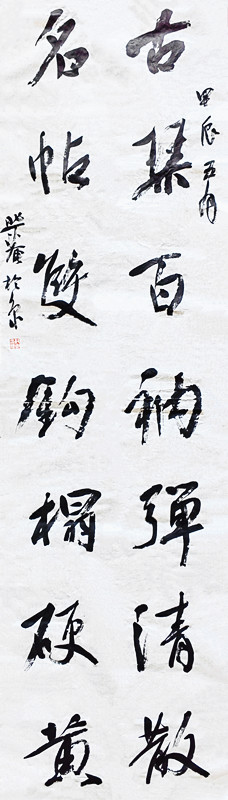 甲辰五月
古琴百衲彈清散
名帖雙鉤搨硬黃
柴菴於京